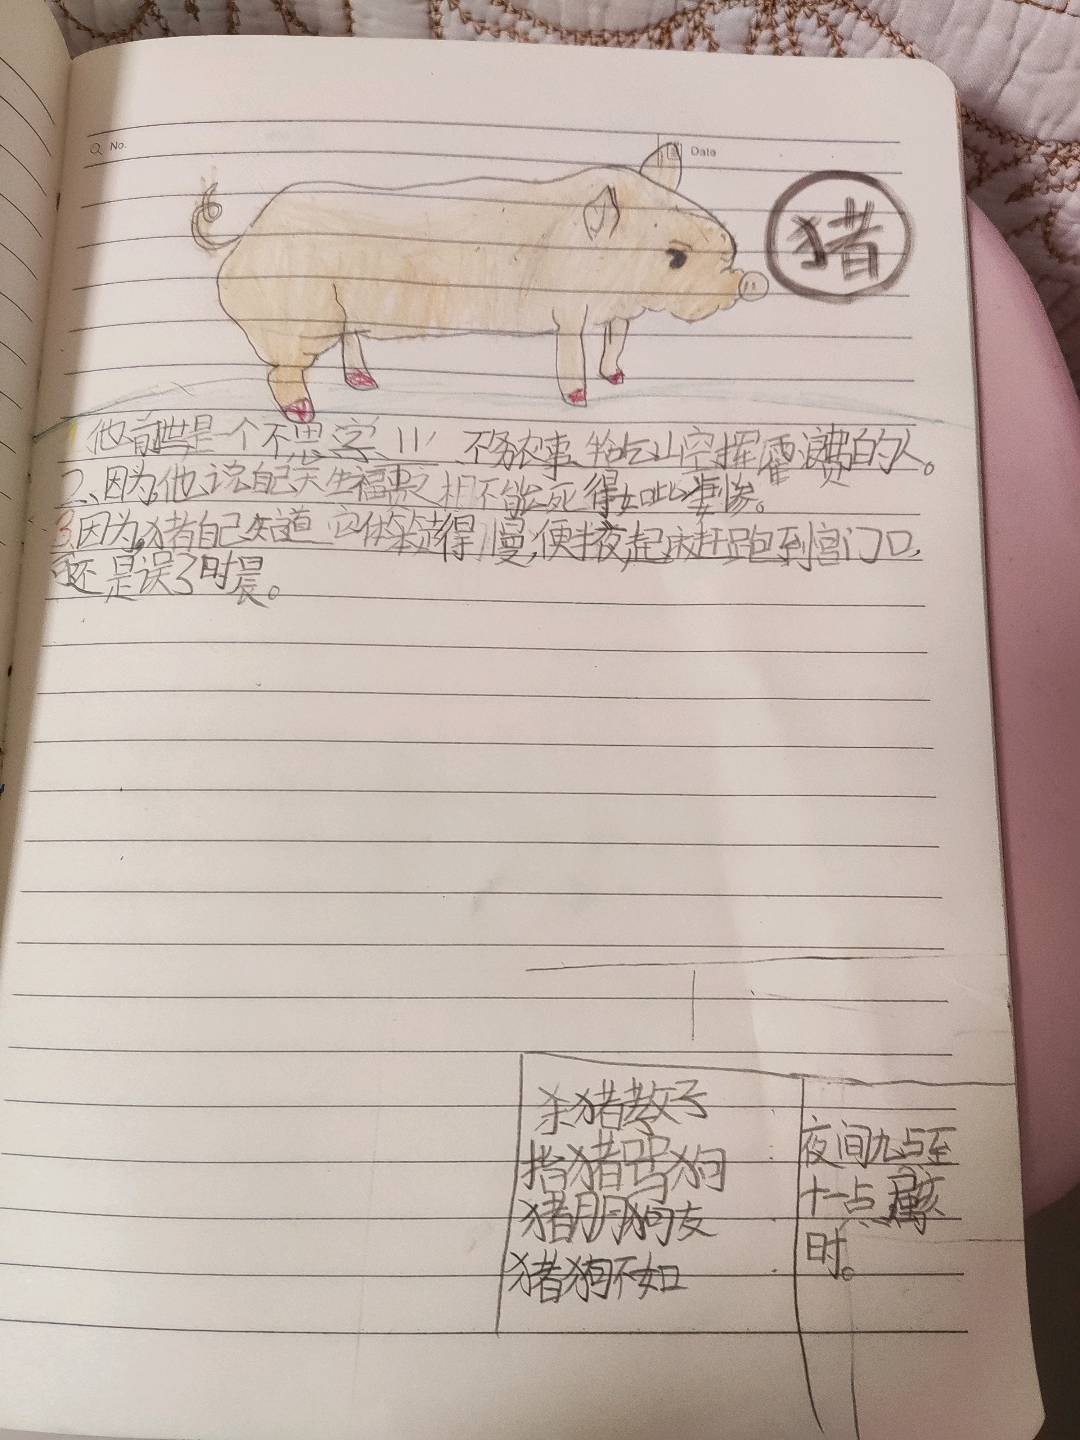 No.
Date
猪
1 他前世是一个不思学、不务农事、坐吃山空挥霍浪费的人。
2、因为他说自己天生福惠之相不能死得如此凄惨。
3、因为猪自己知道它体笨走得慢,便半夜起床赶跑到宫门口,
可还是误了时晨。
杀猪教子
指猪骂狗
猪朋狗友
猪狗不如
夜间九点至
十一点属亥
时。